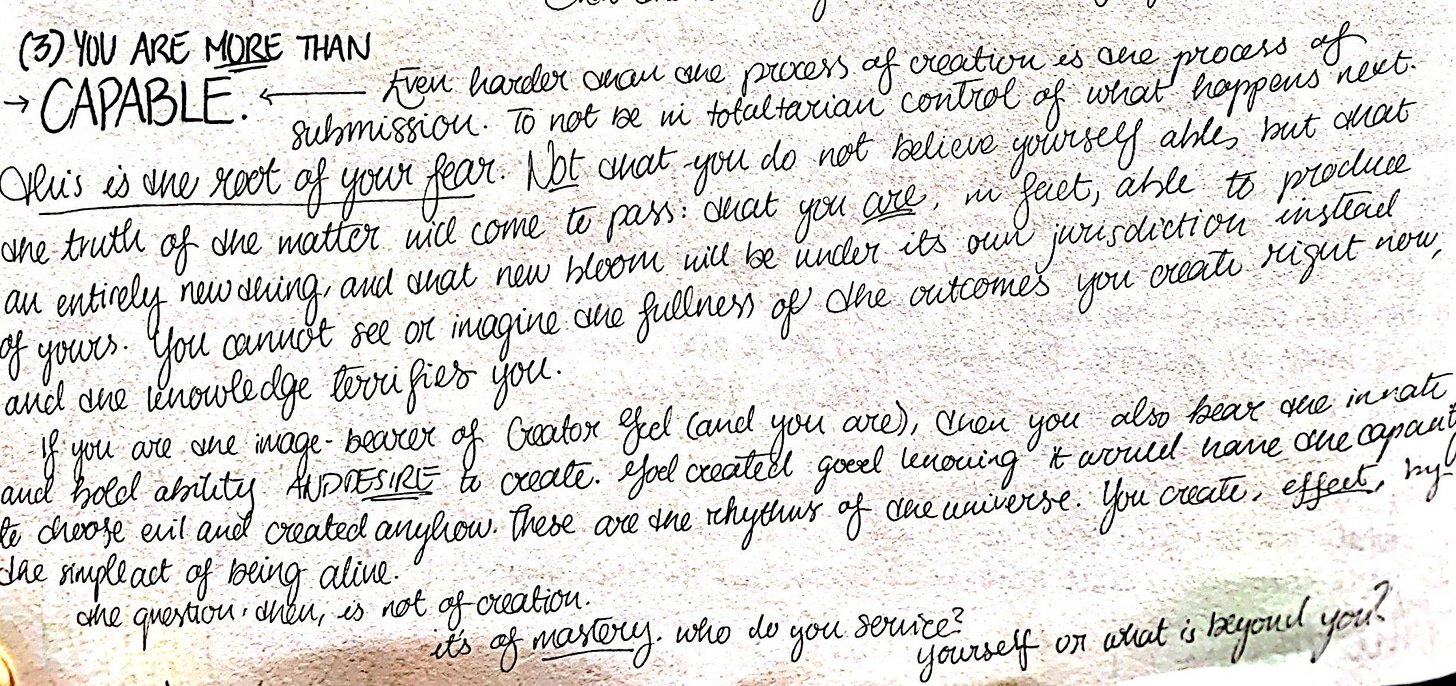 (3) YOU ARE MORE THAN
→ CAPABLE. ← Even harder than the process of creation is the process of
submission. To not be in totaltarian control of what happens next.
This is the root of your fear. Not that you do not believe yourself able, but that
the truth of the matter will come to pass: that you are, in fact, able to produce
an entirely new thing, and that new bloom will be under its own jurisdiction instead
of yours. You cannot see or imagine the fullness of the outcomes you create right now,
and the knowledge terrifies you.
If you are the image-bearer of Creator God (and you are), then you also bear the innate
and bold ability AND DESIRE to create. God created good knowing it would have the capacity
to choose evil and created anyhow. These are the rhythms of the universe. You create, effect, by
the simple act of being alive.
the question, then, is not of creation.
it's of mastery. who do you service?
yourself or what is beyond you?